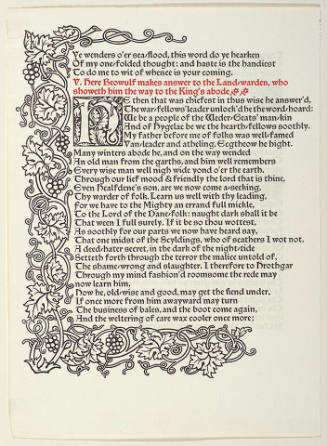 Ye wenders o'er sea-flood, this word do ye hearken
Of my one-folded thought: and haste is the handiest
To do me to wit of whence is your coming.
V. Here Beowulf makes answer to the Land-warden, who
showeth him the way to the King's abode
HE then that was chiefest in thus wise he answer'd,
The war-fellows' leader unlock'd he the word-hoard:
We be a people of the Weder-Geats' man-kin
And of Hygelac be we the hearth-fellows soothly.
My father before me of folks was well-famed
Van-leader and atheling, Ecgtheow he hight.
Many winters abode he, and on the way wended
An old man from the garths, and him well remembers
Every wise man well nigh wide yond o'er the earth.
Through our lief mood & friendly the lord that is thine,
Even Healfdene's son, are we now come a-seeking,
Thy warder of folk. Learn us well with thy leading,
for we have to the Mighty an errand full mickle,
To the Lord of the Dane-folk: naught dark shall it be
That ween I full surely. If it be so thou wottest,
As soothly for our parts we now have heard say,
That one midst of the Scyldings, who of scathers I wot not,
A deed-hater secret, in the dark of the night-tide
Setteth forth through the terror the malice untold of,
The shame-wrong and slaughter. I therefore to Hrothgar
Through my mind fashion'd roomsome the rede may
now learn him,
How he, old-wise and good, may get the fiend under,
If once more from him awayward may turn
The business of bales, and the boot come again,
And the weltering of care wax cooler once more;